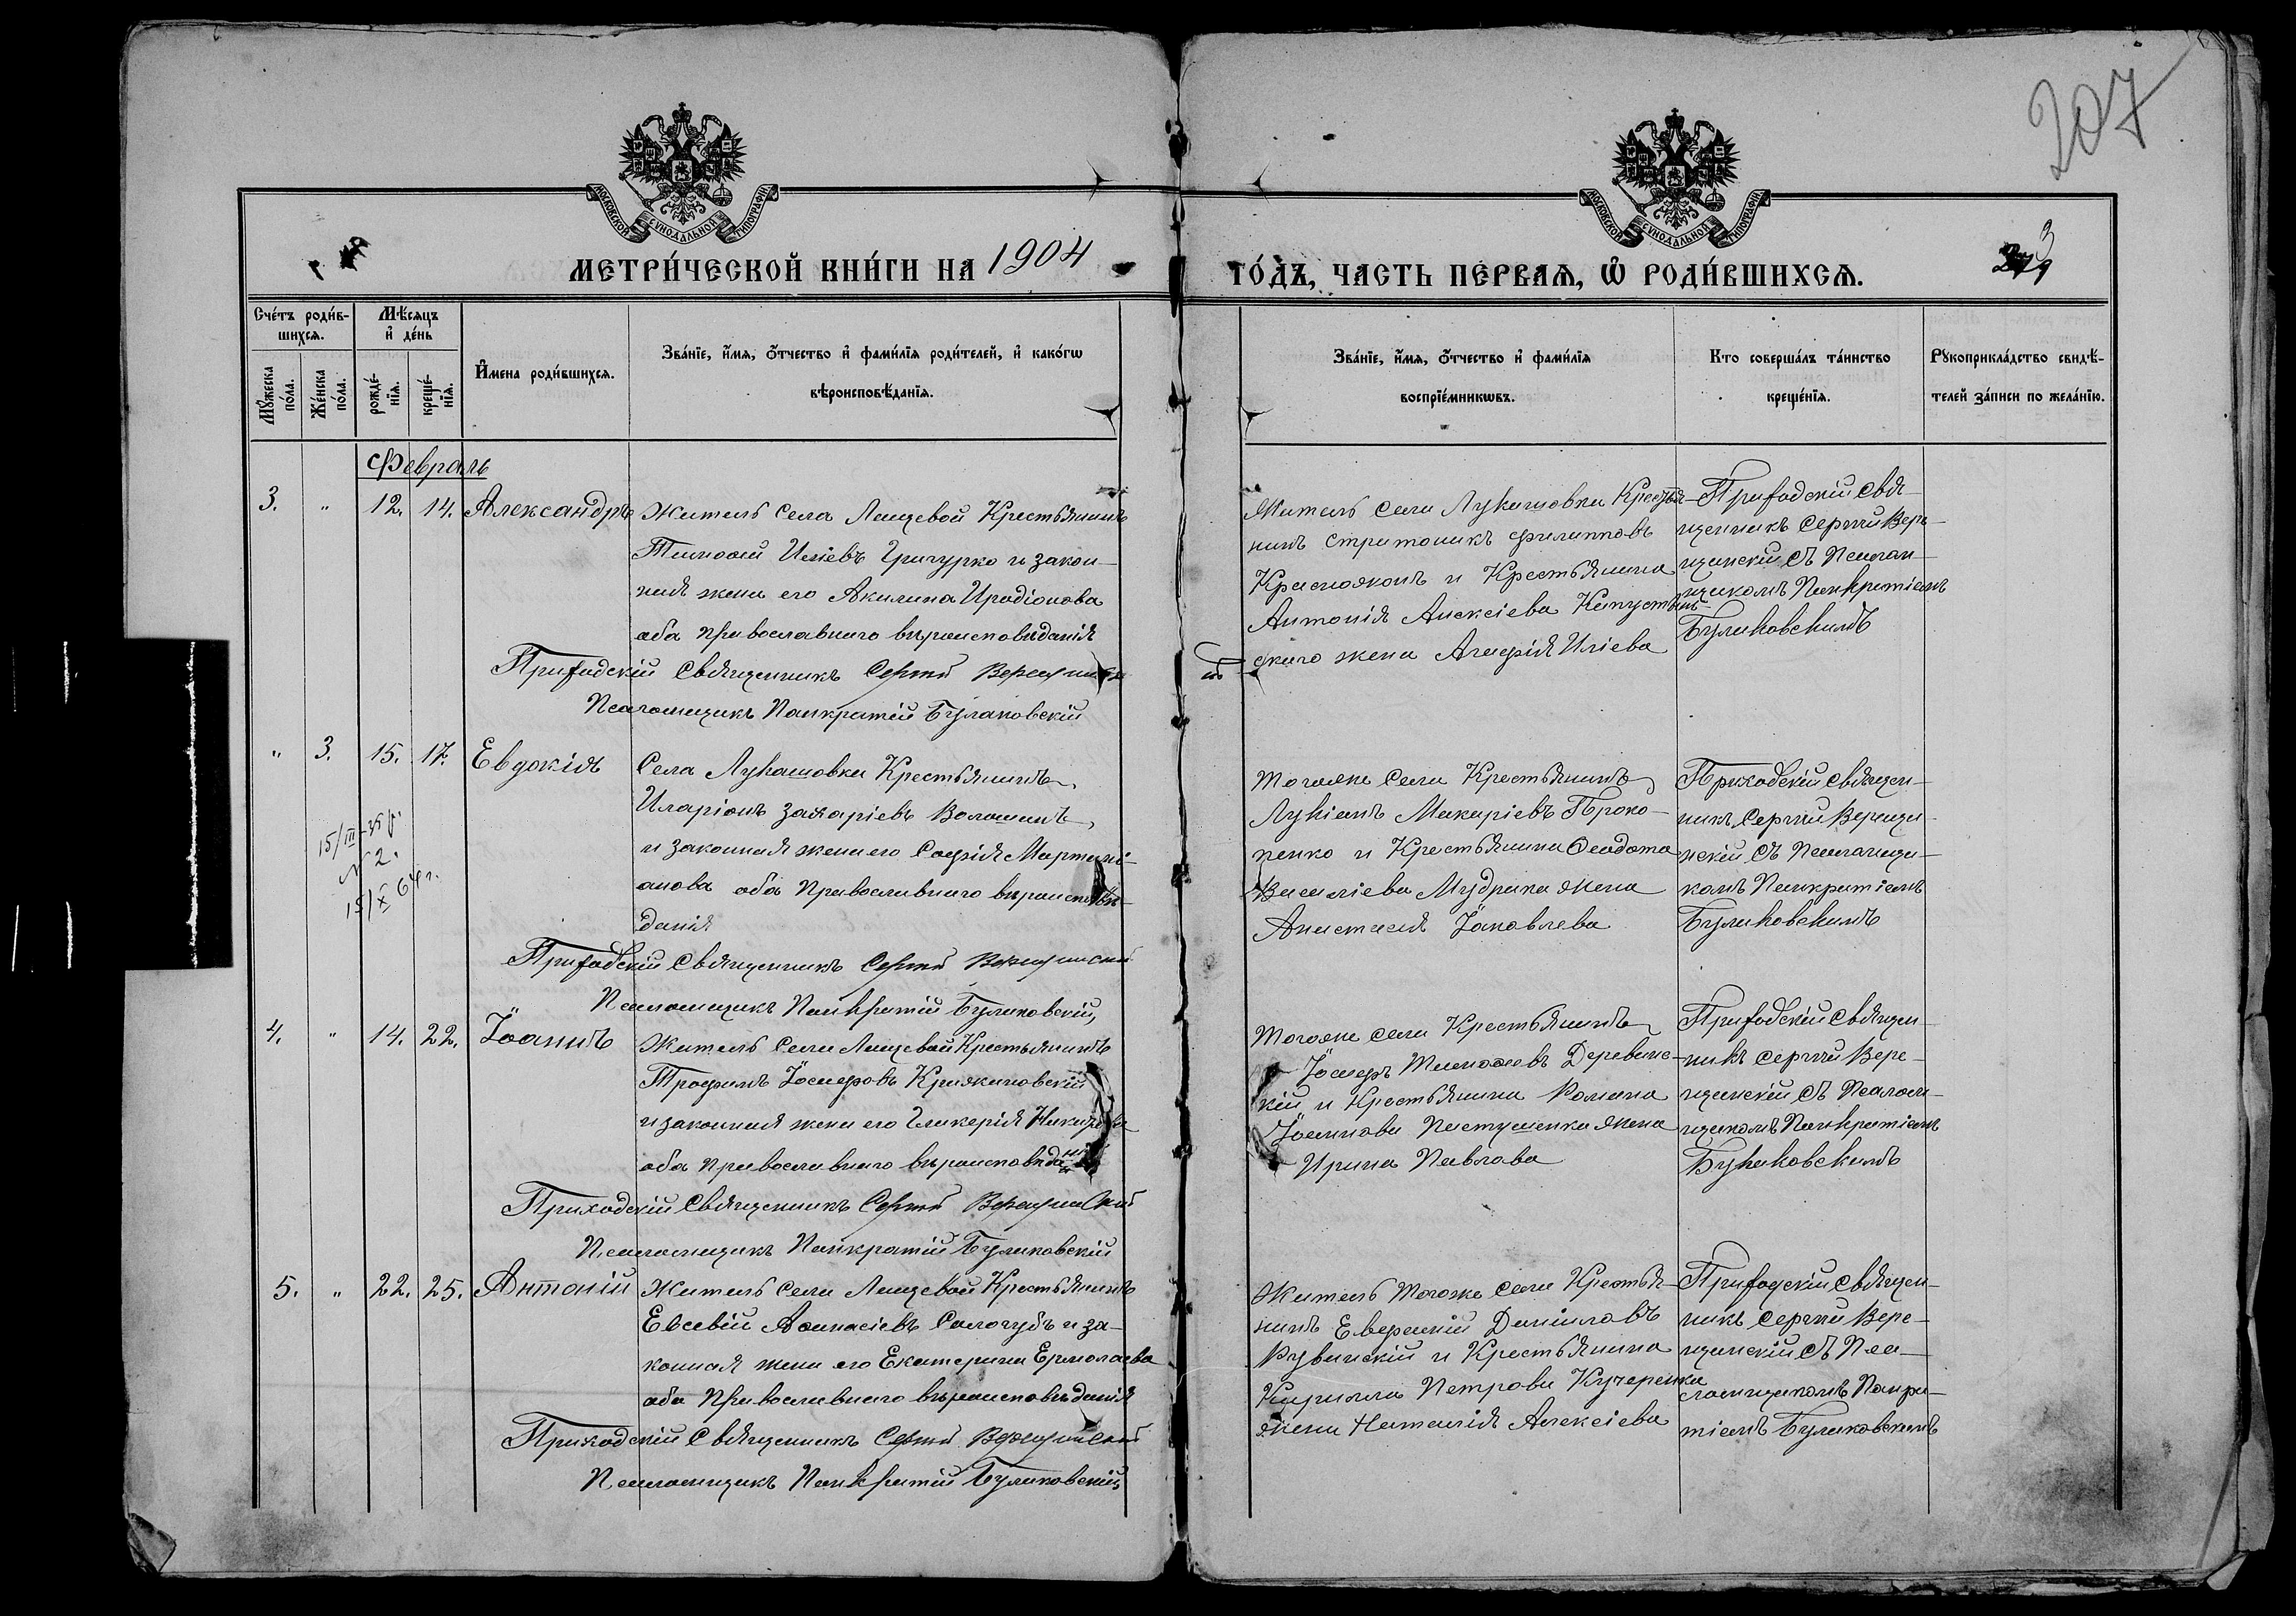 207
МОСКОВСКОЙ СѴНОДАЛЬНОЙ ТИПОГРАФІИ
МОСКОВСКОЙ СѴНОДАЛЬНОЙ ТИПОГРАФІИ
МЕТРИ́ЧЕСКОЙ КНИ́ГИ НА 1904
ГО́ДЪ, ЧАСТЬ ПЕ́РВАЯ, Ѡ҆ РОДИ́ВШИХСѦ.
3
Счéтъ роди́в-
шихся.
Мѣ́сяцъ
и҆ де́нь
Мꙋ́жеска
по́ла.
Же́нска
по́ла.
рожде́-
нїя.
креще́-
нїя.
И҆мена роди́вшихся.
Зва́нїе, и҆́мя, ѻ҆́тчество и҆ фами́лїя роди́телей, и҆ како́гѡ
вѣроисповѣ́данїя.
Зва́нїе, и҆́мя, ѻ҆́тчество и҆ фами́лїя
воспрїе́мникѡвъ.
Кто соверша́лъ та́инство
креще́нїя.
Рꙋкоприкла́дство свидѣ́-
телей за́писи по жела́нїю.
Февраль
3. " 12. 14. Александръ
Житель села Лещевой Крестьянинъ
Тимоѳей Иліевъ Григурко и закон-
ная жена его Акилина Иродіонова
оба православнаго вѣроисповѣданія
Приходскій Священникъ Сергій
Псаломщикъ Панкратій Булаковскій
Житель села Лукашовки Крестья-
нинъ Стратоникъ Филипповъ
и Крестьянина
Антонія Алексіева
жена Агафія Иліева
Приходскій Свя-
щенникъ Сергій Вере-
щинскій съ Псалом-
щикомъ Панкратіемъ
Булаковскимъ
" 3. 15. 17. Евдокія
15/III-35 г.
№ 2.
15/X 64 г.
Села Лукашовки Крестьянинъ
Иларіонъ Захаріевъ Волошинъ,
и законная жена его Софія Мартині-
анова оба Православнаго вѣроисповѣ-
данія
Приходскій Священникъ Сергій
Псаломщикъ Панкратій Булаковскій,
Тогоже села Крестьянинъ
Лукіанъ Макаріевъ Проко-
пенко и Крестьянина Ѳеодота
Василіева Мудрака жена
Анастасія Іаковлева
Приходскій Священ-
никъ Сергій Верещи-
нскій съ Псаломщи-
комъ Панкратіемъ
Булаковскимъ
4. " 14. 22. Іоаннъ
Житель села Лещевой Крестьянинъ
Трофимъ Іосифовъ Крижановскій
и законная жена его Гликерія
оба православнаго вѣроисповѣданія
Приходскій Священникъ Сергій
Псаломщикъ Панкратій Булаковскій
Тогоже села Крестьянинъ
Іосифъ Тимоѳеевъ Деревинс-
кій и Крестьянина Романа
Іоаннова Пастушенка жена
Ирина Павлова
Приходскій Священ-
никъ Сергій Вере-
щинскій съ Псалом-
щикомъ Панкратіемъ
Булаковскимъ
5. " 22. 25. Антоній
Житель села Лещевой Крестьянинъ
Евсевій Аѳанасіевъ Сологубъ и за-
конная жена его Екатерина Ермолаева
оба Православнаго вѣроисповѣданія
Приходскій Священникъ Сергій
Псаломщикъ Панкратій Булаковскій,
Житель тогоже села Крестья-
нинъ Даніиловъ
и Крестьянина
Кирилла Петрова Кучеренка
жена Наталія Алексіева
Приходскій Священ-
никъ Сергій Вере-
щинскій съ Пса-
ломщикомъ Панкра-
тіемъ Булаковскимъ